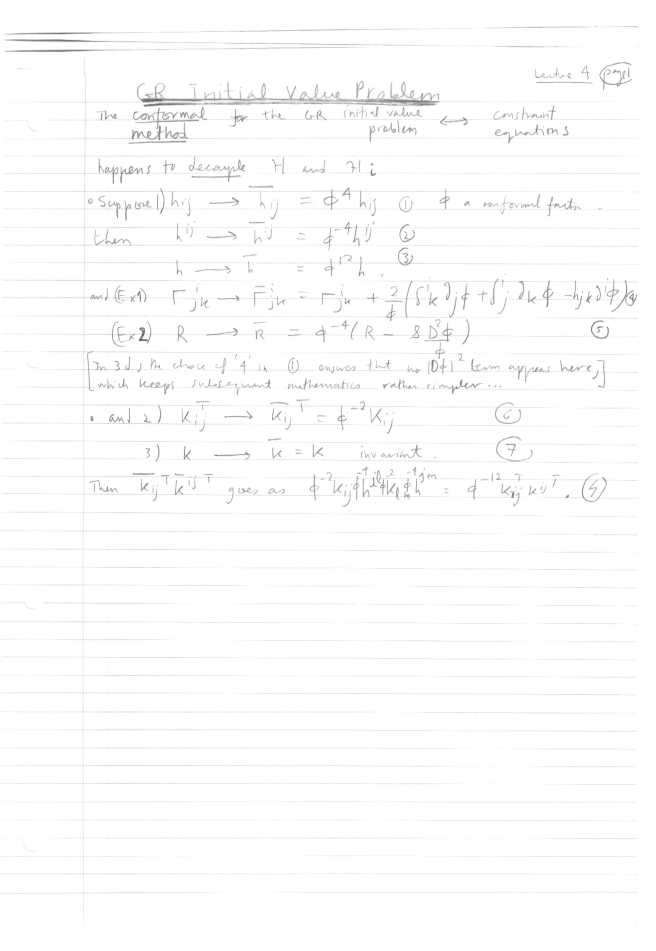 Lecture 4 page 1
GR Initial Value Problem
The conformal method for the GR initial value problem ↔ constraint equations
happens to decouple H and H i
• Suppose 1) hij → h̄ij = φ⁴ hij ① φ a conformal factor.
then h^ij → h̄^ij = φ⁻⁴ h^ij ②
h → h̄ = φ¹² h. ③
and (Ex 1) Γ^i jk → Γ̄^i jk = Γ^i jk + 2/φ (δ^i k ∂j φ + δ^i j ∂k φ − hjk ∂^i φ) ④
(Ex 2) R → R̄ = φ⁻⁴ (R − 8 D²φ/φ) ⑤
[In 3d, the choice of '4' in ① ensures that no |Dφ|² term appears here,
which keeps subsequent mathematics rather simpler...]
• and 2) Kij^T → K̄ij^T = φ⁻² Kij ⑥
3) k → k̄ = k invariant. ⑦
Then K̄ij^T K̄^ij T goes as φ⁻² Kij φ⁻⁴ h^il φ⁻² Kl φ⁻⁴ h^jm = φ⁻¹² Kij^T K^ij T.